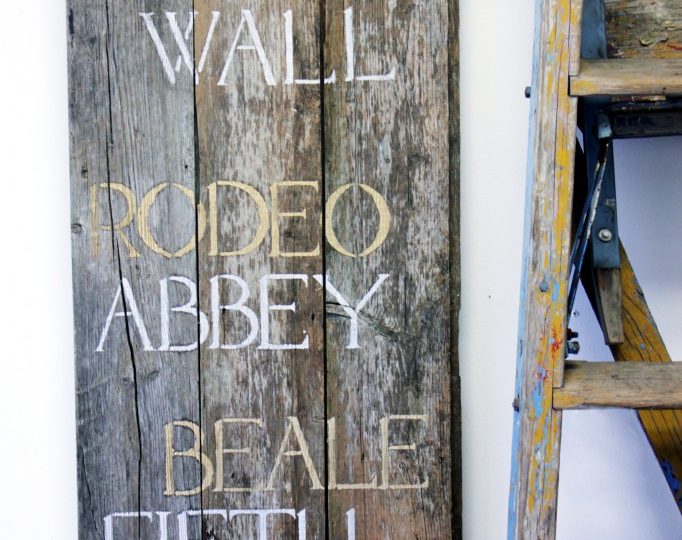 WALL
RODEO
ABBEY
BEALE
FIFTH